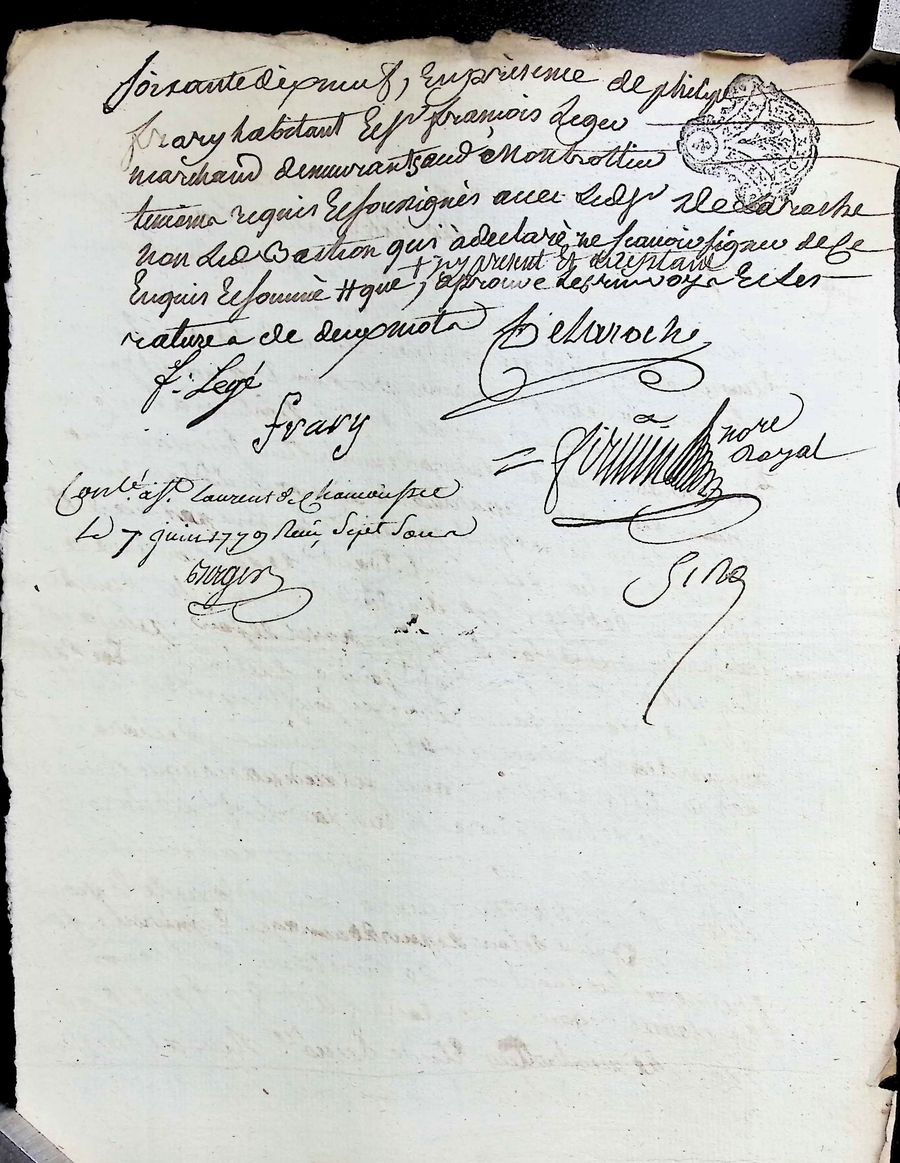 soixante dix neuf, En présence de philipe
frary habitant Et sr françois Leger
marchand demeurants aud Montrottier
temoins requis Et soussignés avec Ledsr Delaroche
non Led Bastion qui à declaré ne sçavoir signer de Ce
+ ny present Et acceptant
Enquis Et sommé # que, aprouvé Les renvoys Et Les
ratures de deux mots Delaroche
f: Legé
frary
nore
Royal
Conlé. à St. Laurent de Chamousset
Le 7 juin 1779 Reçu Sept Sous